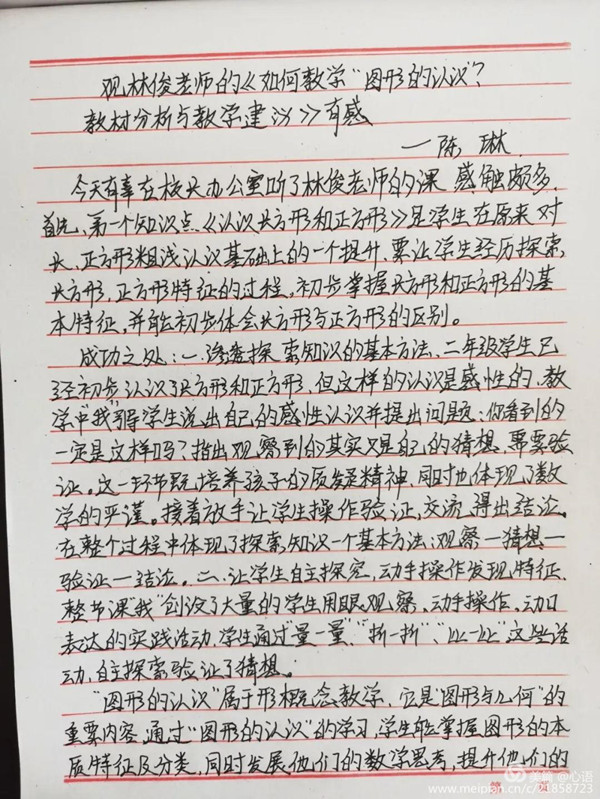 观林俊老师的《如何教学"图形的认识"?
教材分析与教学建议》有感
—陈琳
今天有幸在校长办公室听了林俊老师的课 感触颇多.
首先,第一个知识点《认识长方形和正方形》是学生在原来对
长,正方形粗浅认识基础上的一个提升,要让学生经历探索,
长方形,正方形特征的过程,初步掌握长方形和正方形的基
本特征,并能初步体会长方形与正方形的区别。
成功之处:一.渗透探索知识的基本方法、二年级学生已
经初步认识了长方形和正方形,但这样的认识是感性的,教
学中"我"引导学生说出自己的感性认识并提出问题:你看到的
一定是这样吗?指出观察到的其实只是自己的猜想,需要验
证。这一环节既培养孩子的质疑精神,同时也体现了数
学的严谨。接着放手让学生操作验证,交流,得出结论。
在整个过程中体现了探索知识一个基本方法:观察—猜想—
验证—结论。二.让学生自主探究,动手操作发现特征.
整节课"我"创设了大量的学生用眼观察,动手操作,动口
表达的实践活动,学生通过"量一量"、"折一折"、"比一比"这些活
动,自主探索验证了猜想。
"图形的认识"属于形概念教学,它是"图形与几何"的
重要内容,通过"图形的认识"的学习,学生能掌握图形的本
质特征及分类,同时发展他们的数学思考,提升他们的
美篇 @心语
www.meipian.cn/c/21858723